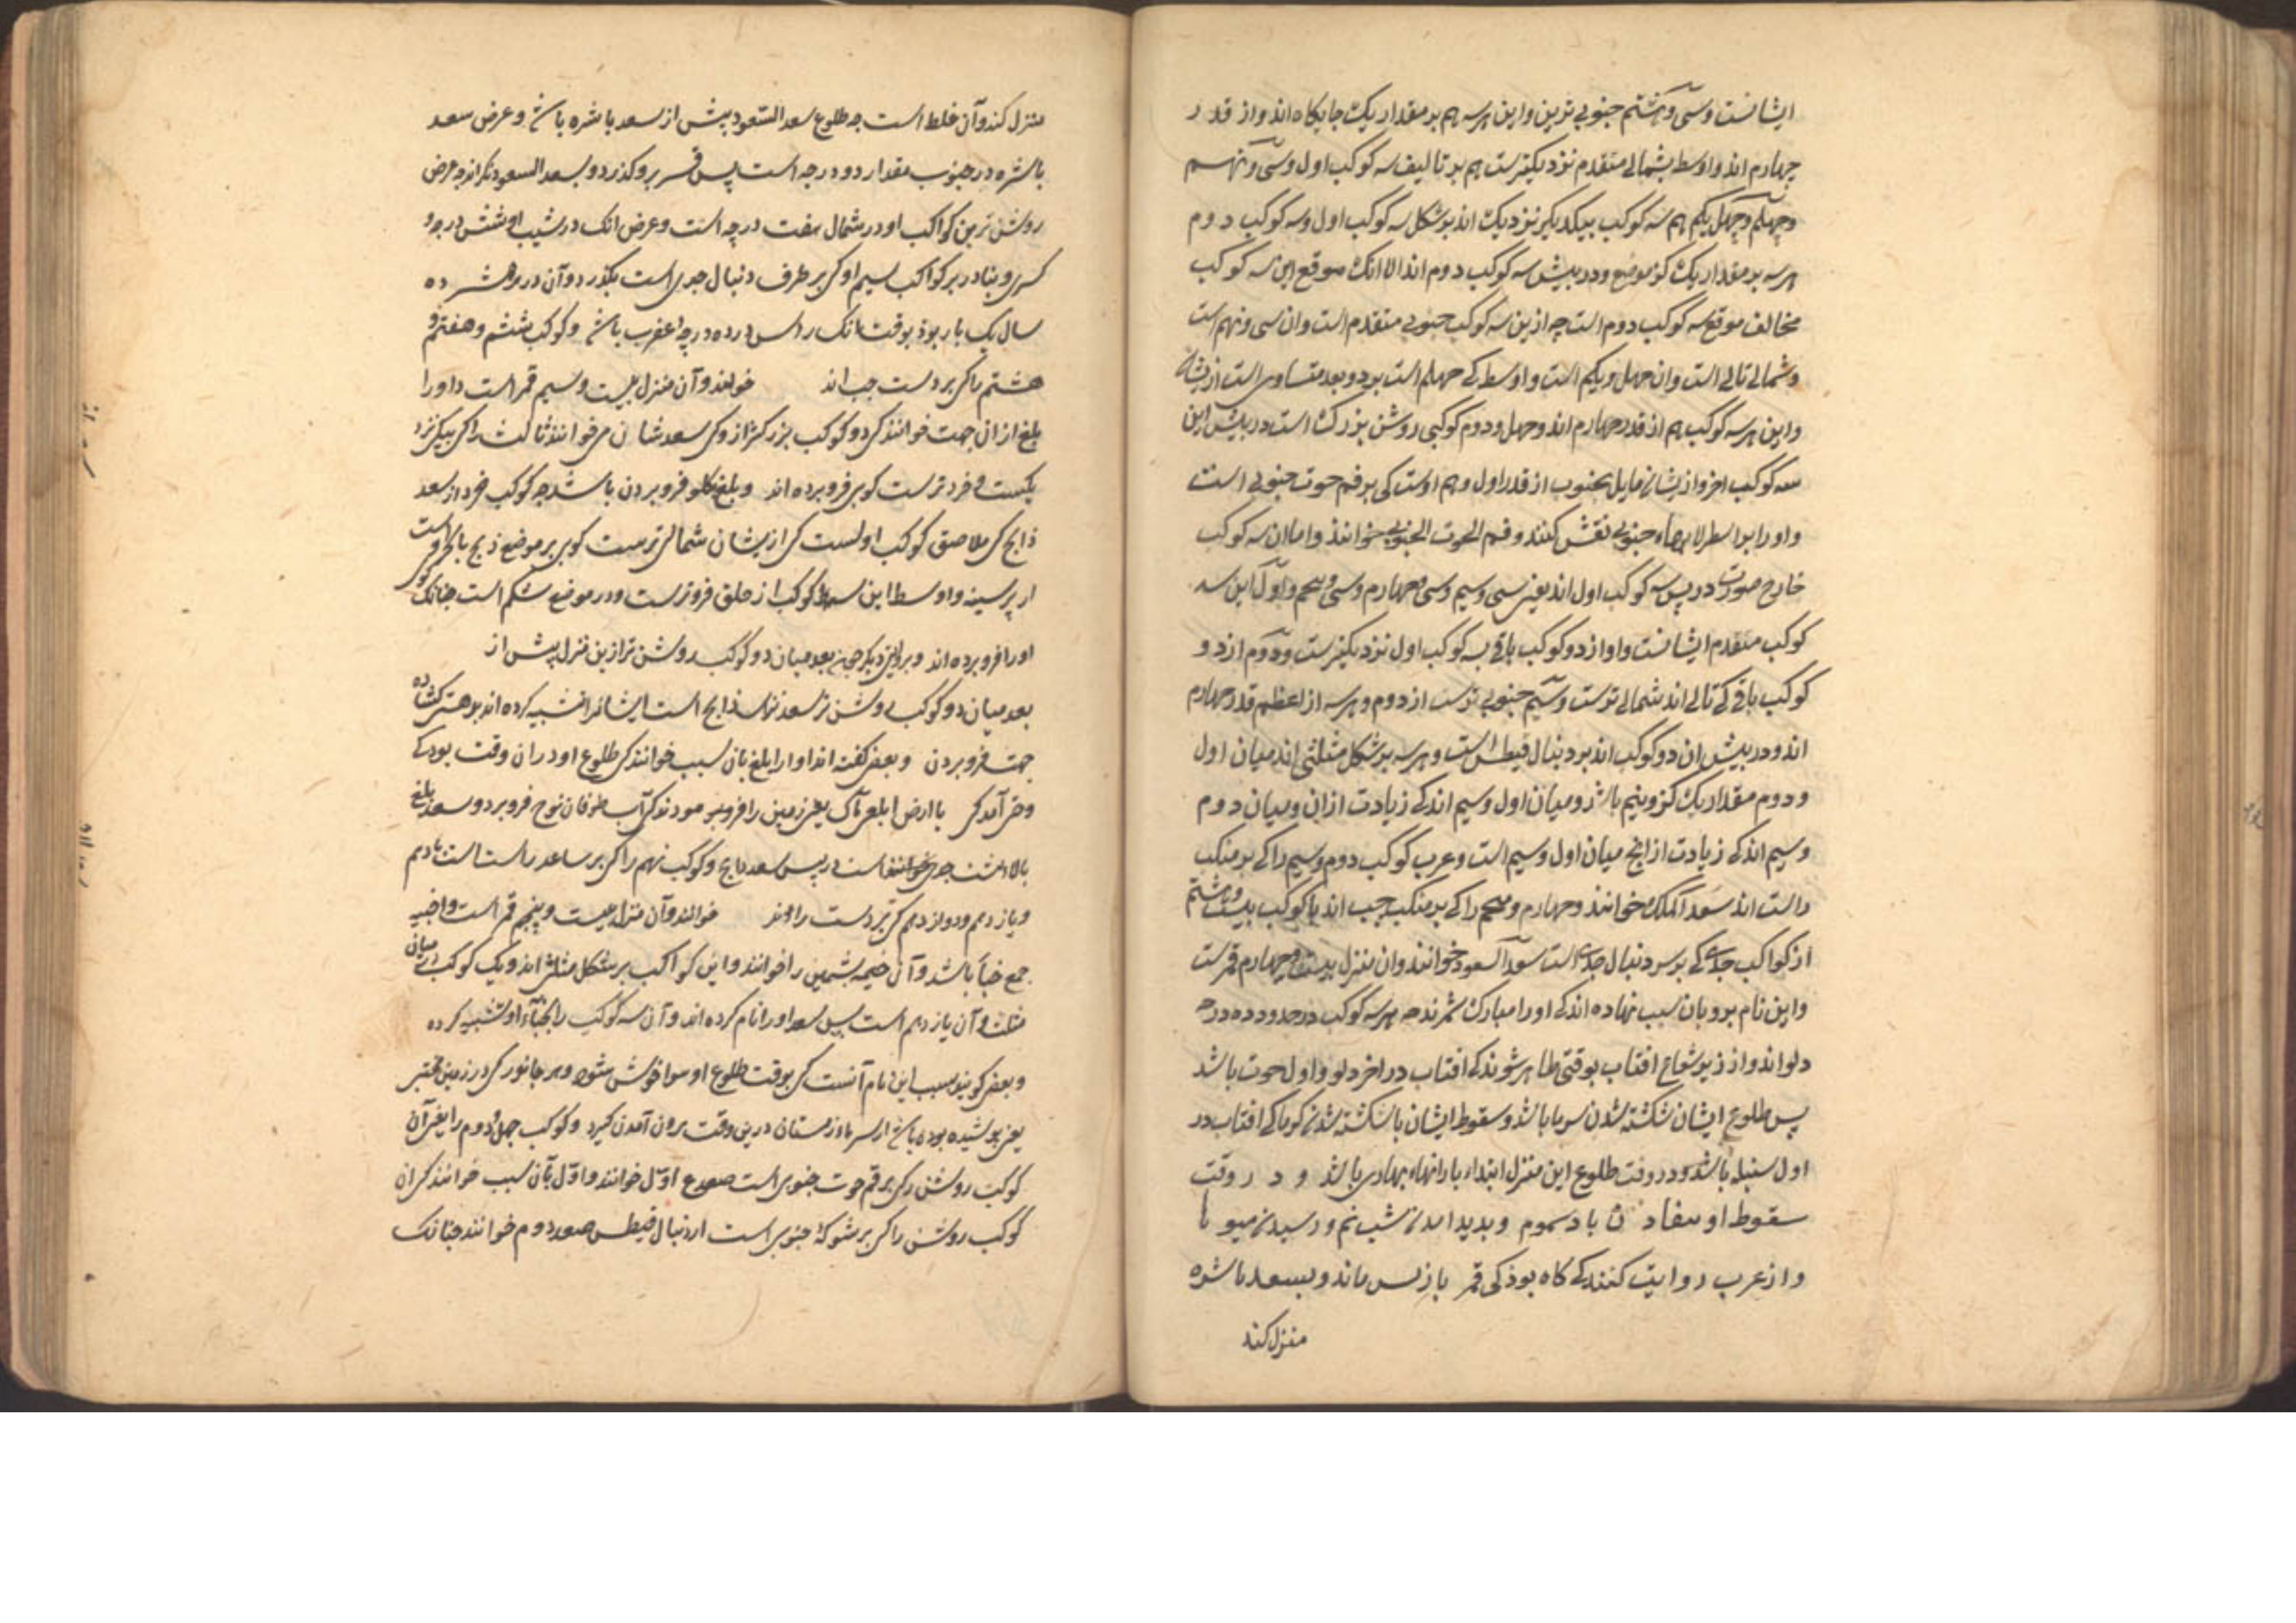 ایشانست وسی وهشتم جنوبی ترین واین هرسه هم بر مقدار یک جایکاه اند واز قدر
چهارم اند واوسط بشمالی متقدم نزدیکترست هم بر تالیف سه کوکب اول وسی ونهم
وچهلم وچهل یکم هم سه کوکب بیکدیکر نزدیک اند بر شکل سه کوکب اول وسه کوکب دوم
هرسه بر مقدار یک کز موضع ودر پیش سه کوکب دوم اند الا انک موقع این سه کوکب
مخالف موقع سه کوکب دوم است چه ازین سه کوکب جنوبی متقدم است وان سی ونهم است
وشمالی تالی است وان چهل ویکم است واوسط کی چهلم است بر دو بعد متساوی است ازیشان
واین هرسه کوکب هم از قدر چهارم اند وچهل ودوم کوکبی روشن بزرک است در پیش این
سه کوکب اخر وازیشان مایل بجنوب از قدر اول وهم اوست کی بر فم حوت جنوبی است
واورا بر اسطرلابهاء جنوبی نقش کنند وفم الحوت الجنوبی خوانند واما ان سه کوکب
خارج صورت در پس سه کوکب اول اند یعنی سی وسیم وسی وچهارم وسی وپنجم واول این سه
کوکب متقدم ایشانست واو از دو کوکب باقی بسه کوکب اول نزدیکترست ودوم از دو
کوکب باقی کی تالی اند شمالی ترست وسیم جنوبی ترست از دوم وهرسه از اعظم قدر چهارم
اند ودر پیش ان دو کوکب اند بر دنبال قیطس است وهرسه بر شکل مثلثی اند میان اول
ودوم مقدار یک کز ونیم باشد ومیان اول وسیم اندکی زیادت ازان ومیان دوم
وسیم اندکی زیادت از انچ میان اول وسیم است وعرب کوکب دوم وسیم را کی بر منکب
راست اند سعد الملک خوانند وچهارم وپنجم را کی بر منکب چپ اند با کوکب بیست وهشتم
از کواکب جدی کی بر سر دنبال جدی است سعد السعود خوانند وان منزل بیست وچهارم قمرست
واین نام برو بان سبب نهاده اند کی اورا مبارک شمرند چه هرسه کوکب در حدود ده درجه
دلو اند واز زیر شعاع افتاب بوقتی ظاهر شوند کی افتاب در اخر دلو واول حوت باشد
پس طلوع ایشان شکسته شدن سرما باشد وسقوط ایشان با شکسته شدن کرما کی افتاب در
اول سنبله باشد ودر وقت طلوع این منزل ابتداء بارانهاء بهاری باشد و در وقت
سقوط او باد سموم وپدید امدن شب نم ورسیدن میوها
واز عرب روایت کنند کی کاه بود کی قمر باز پس ماند وبسعد ناشره
منزل کند
منزل کند وآن غلط است چه طلوع سعد السعود پیش از سعد ناشره باشد وعرض سعد
ناشره در جنوب مقدار دو درجه است پس قمر برو کذرد وبسعد السعود نکراند چه عرض
روشن ترین کواکب او در شمال هفت درجه است وعرض انک در شیب او شش درجه و
کسری وبنادر بر کواکب سیم او کی بر طرف دنبال جدی است بکذرد وآن در هشرده
سال یک بار بود بوقت انک راس در ده درجه عقرب باشد وکوکب ششم وهفتم و
هشتم کی بر دست چپ اند خوانند وآن منزل بیست وسیم قمر است واورا
بلع ازان جهت خوانند کی دو کوکب بزرکتر از وی سعد شان می خوانند ثالث را کی بیکی نزد
یکست وخردترست کویی فرو برده اند وبلع کلو فرو بردن باشد چه کوکب خرد از سعد
ذابح کی ملاصق کوکب اولست کی ازیشان شمالی ترست کویی بر موضع ذبح است
از بر سینه واوسط این سه کوکب از حلق فروترست ودر موضع شکم است چنانک کویی
اورا فرو برده اند وبروایتی دیکر چون بعد میان دو کوکب روشن تر ازین منزل بیش از
بعد میان دو کوکب روشن تر سعد ذابح است ایشانرا تشبیه کرده اند بدهنی کشاده
جهت فرو بردن وبعضی کفته اند اورا بلع بان سبب خوانند کی طلوع او دران وقت بود کی
وحی آمد کی یا ارض ابلعی ماک یعنی زمین را فرمودند کی آب طوفان نوح فرو برد وسعد بلع
بالا است در پس سعد ذابح وکوکب نهم را کی بر ساعد راست است با دهم
ویازدهم ودوازدهم کی بر دست راستند خوانند وآن منزل بیست وپنجم قمر است واخبیه
جمع خبا باشد وآن خیمه پشمین را خوانند واین کواکب بر شکل مثلثی اند ویک کوکب در میان
مثلث وآن یازدهم است پس سعد اورا نام کرده اند وآن سه کوکب را بخباء او تشبیه کرده
وبعضی کویند سبب این نام آنست کی بوقت طلوع او هوا خوش شود وهر جانور کی در زمین مختبی
یعنی پوشیده بوده باشد از سرما وزمستان درین وقت برون آمدن کیرد وکوکب چهل ودوم را یعنی آن
کوکب روشن کی بر فم حوت جنوبی است ضفدع اول خوانند واول بآن سبب خوانند کی ان
کوکب روشن را کی بر شوکهٔ جنوبی است از دنبال قیطس ضفدع دوم خوانند چنانک